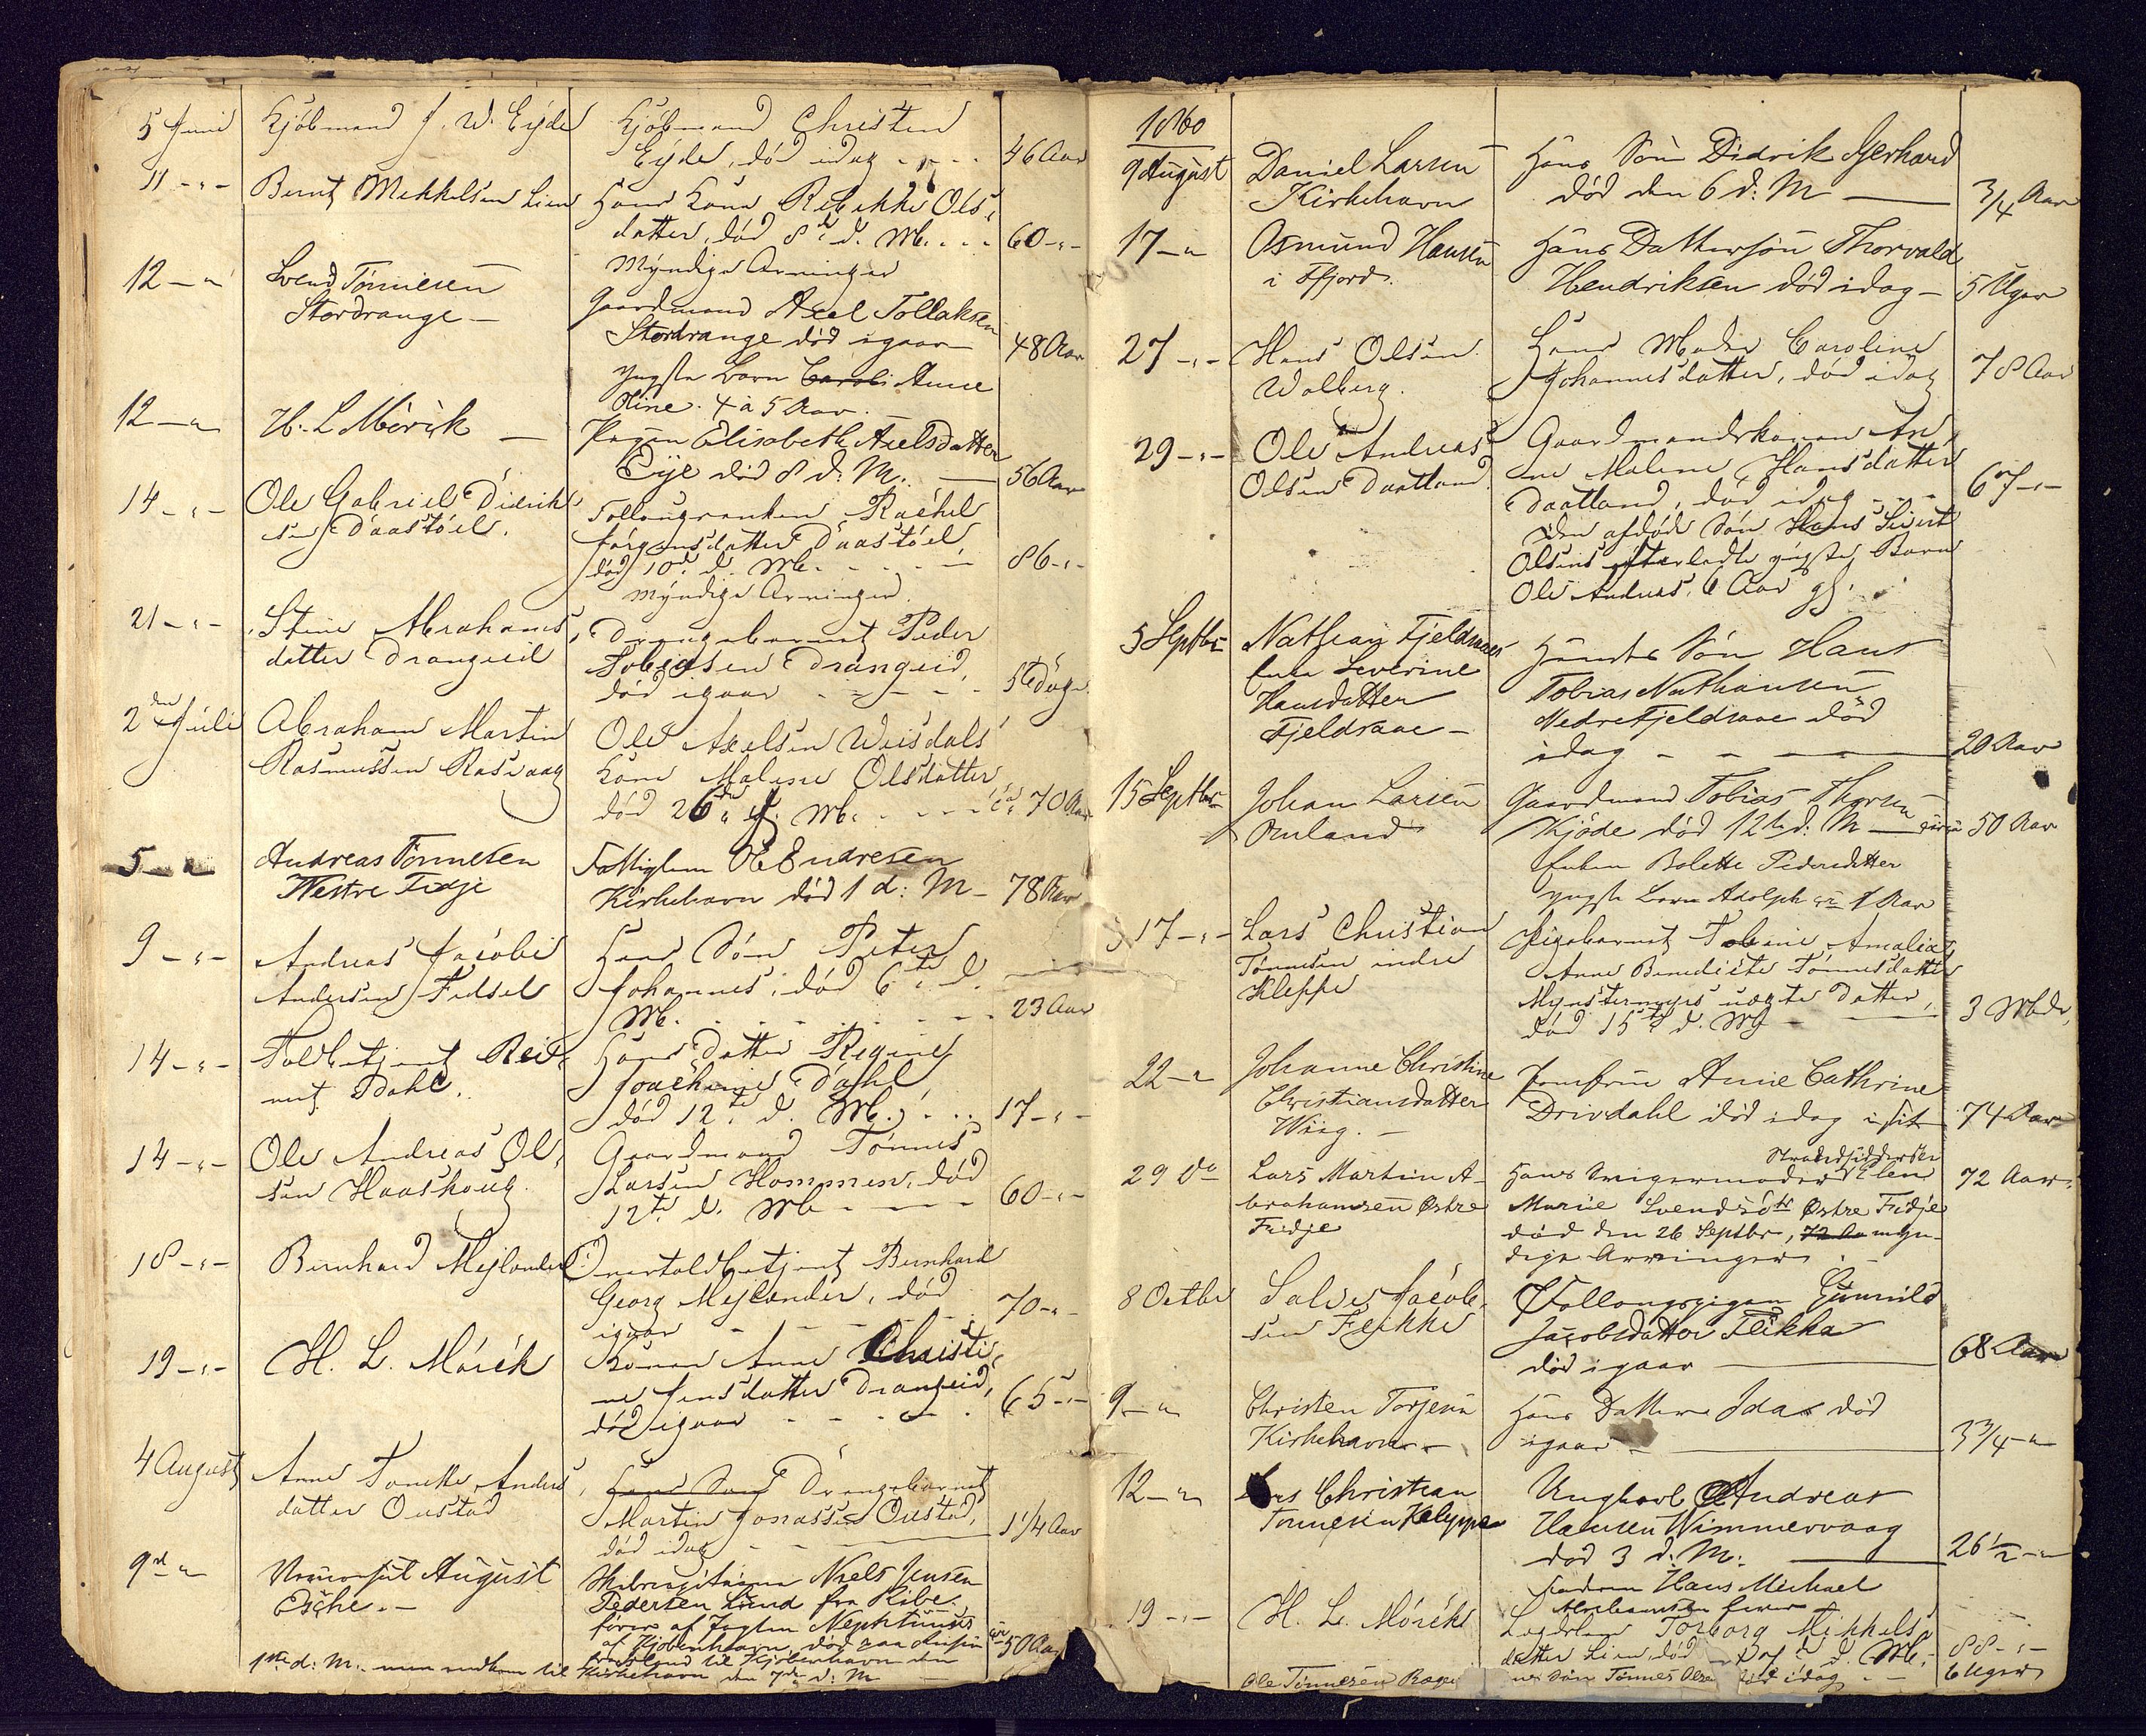 5 Juni
Kjöbmand J. W. Eyde
Kjöbmand Christen
Eyde, död idag
46 Aar
11 -"-
Bernt Mekkelsen Lien
Hans Kone Rebekke Ols
datter, död 8de d. M.
60 -"-
Myndige Arvinger
12 - "
Svend Tönnesen
Stordrange -
Gaardmand Axel Tollaksen
Stordrange död igaar
48 Aar
yngste barn Anne
Oline. 4 à 5 Aar.
12 - "
H. L. Mörck -
Pigen Elisabeth Axelsdatter
Eye död 8 d. M.
56 Aar
14 -"-
Ole Gabriel Didrik
sen Daastöel.
Rachel
Jörgensdatter Daastöel,
död 10de d. M.
86 -"-
Myndige Arvinger.
21 -"-
Stine Abrahams
datter Drangeid
Drengebarnet Peder
Tobiasen Drangeid,
död igaar
2den Juli
Abraham Martin
Rasmussen Rasvaag
Ole Axelsen
Kone Malene Olsdatter
död 26de f. M.
ca 70 Aar
5 - "
Andreas Tönnesen
Vestre Fidje
Fattiglem Ole Endresen
Kirkehavn död 1 d: M -
78 Aar
9 -"-
Andreas Jacobi
Andersen Fedsel
Hans Sön Peter
Johannes, död 6te d.
M.
23 Aar
14 -"-
Toldbetjent
Dahl.
Hans Datter Regine
Joachime Dahl,
död 12te d. M.
17 -"-
14 -"-
Ole Andreas Ol
sen Haashoug.
Gaardmand Tönnes
Larsen Hommen, död
12te d. M.
60 -"-
18 -"-
Bernhard Mejlænder
Overtoldbetjent Bernhard
Georg Mejlænder, död
igaar
70 -"-
19 -"-
H. L. Mörck
Konen Anne Christi
ne Jensdatter Drangeid,
död igaar
65 -"-
4 August
Anne Tonette Anders
datter Oustad
Hans Sön Drengebarnet
Martin Jonassen Oustad,
död idag
1 1/4 Aar
9de "
August
Esche. -
Niels Jensen
Pedersen Lund fra Ribe,
förer af Jagten Neptunus
af Kjöbenhavn, död paa Reisen
til Kjöbenhavn den
50 Aar
1ste d: M. men indkom til Kirkehavn den 7de d: M
1860
9 August
Daniel Larsen
Kirkehavn
Hans Sön Didrik Gerhard
död den 6 d: M
3/4 Aar
17 - "
Osmund Hansen
i Fjord.
Hans Dattersön Thorvald
Hendriksen död idag -
5 Uger
27 -"-
Hans Olsen
Walberg.
Hans Moder Caroline
Johannesdatter, död idag
78 Aar
29 -"-
Ole Andreas
Olsen Daatland.
Gaardmandskonen An
ne Malene Hansdatter
Daatland, död idag
67 -"-
den afdöde Sön Hans Sivert
Olsens efterladte yngste Barn
Ole Andreas, 6 Aar gl.
5 Septbr
Nathan Fjeldsaaes
Enke Severine
Hansdatter
Fjeldsaae -
Hendes Sön Hans
Tobias Nathansen
Nedre Fjeldsaae död
idag
20 Aar
15 Septbr
Johan Larsen
Omland
Gaardmand Tobias Thorsen
Kjöde död 12te d: M
50 Aar
Enken Bolette Pedersdatter
yngste Barn Adolph 1 Aar
17 -"-
Lars Christian
Tönnesen indre
Kleppe
Pigebarnet Tobine Amalia,
Anne Benedicte Tönnesdatter
uægte Datter,
död 15de d. M
3 Mdr.
22 - "
Johanne Christine
Christiansdatter
Wiig. -
Jomfru Anne Cathrine
Drivdahl död idag i sit
74 Aar
29 do
Lars Martin A-
brahamsen Östre
Fidje
Hans Svigermoder Elen
72 Aar.
Marie Svendsdtr Östre Fidje
död den 26 Septbr, 72 Aa myn-
dige Arvinger
8 Octbr
Salve Jacob
sen Flikke
Gunnild
Jacobsdatter Flikka
död igaar
68 Aar
9 - "
Christen Torjesen
Kirkehavn -
Hans Datter Ida död
igaar -
3 3/4 - "
12 - "
Lars Christian
Tönnesen Kleppe
Ungkarl Andreas
Hansen Wimmervaag
död 3 d: M.
26 1/2 - "
Hans Michael
19 -"-
H. L. Mörck
Lægdslem Torborg Mikkels
datter Lien, död d. M.
88 -"-
Ole Tönnesen
Sön Tönnes Olsen död idag
6 Uger